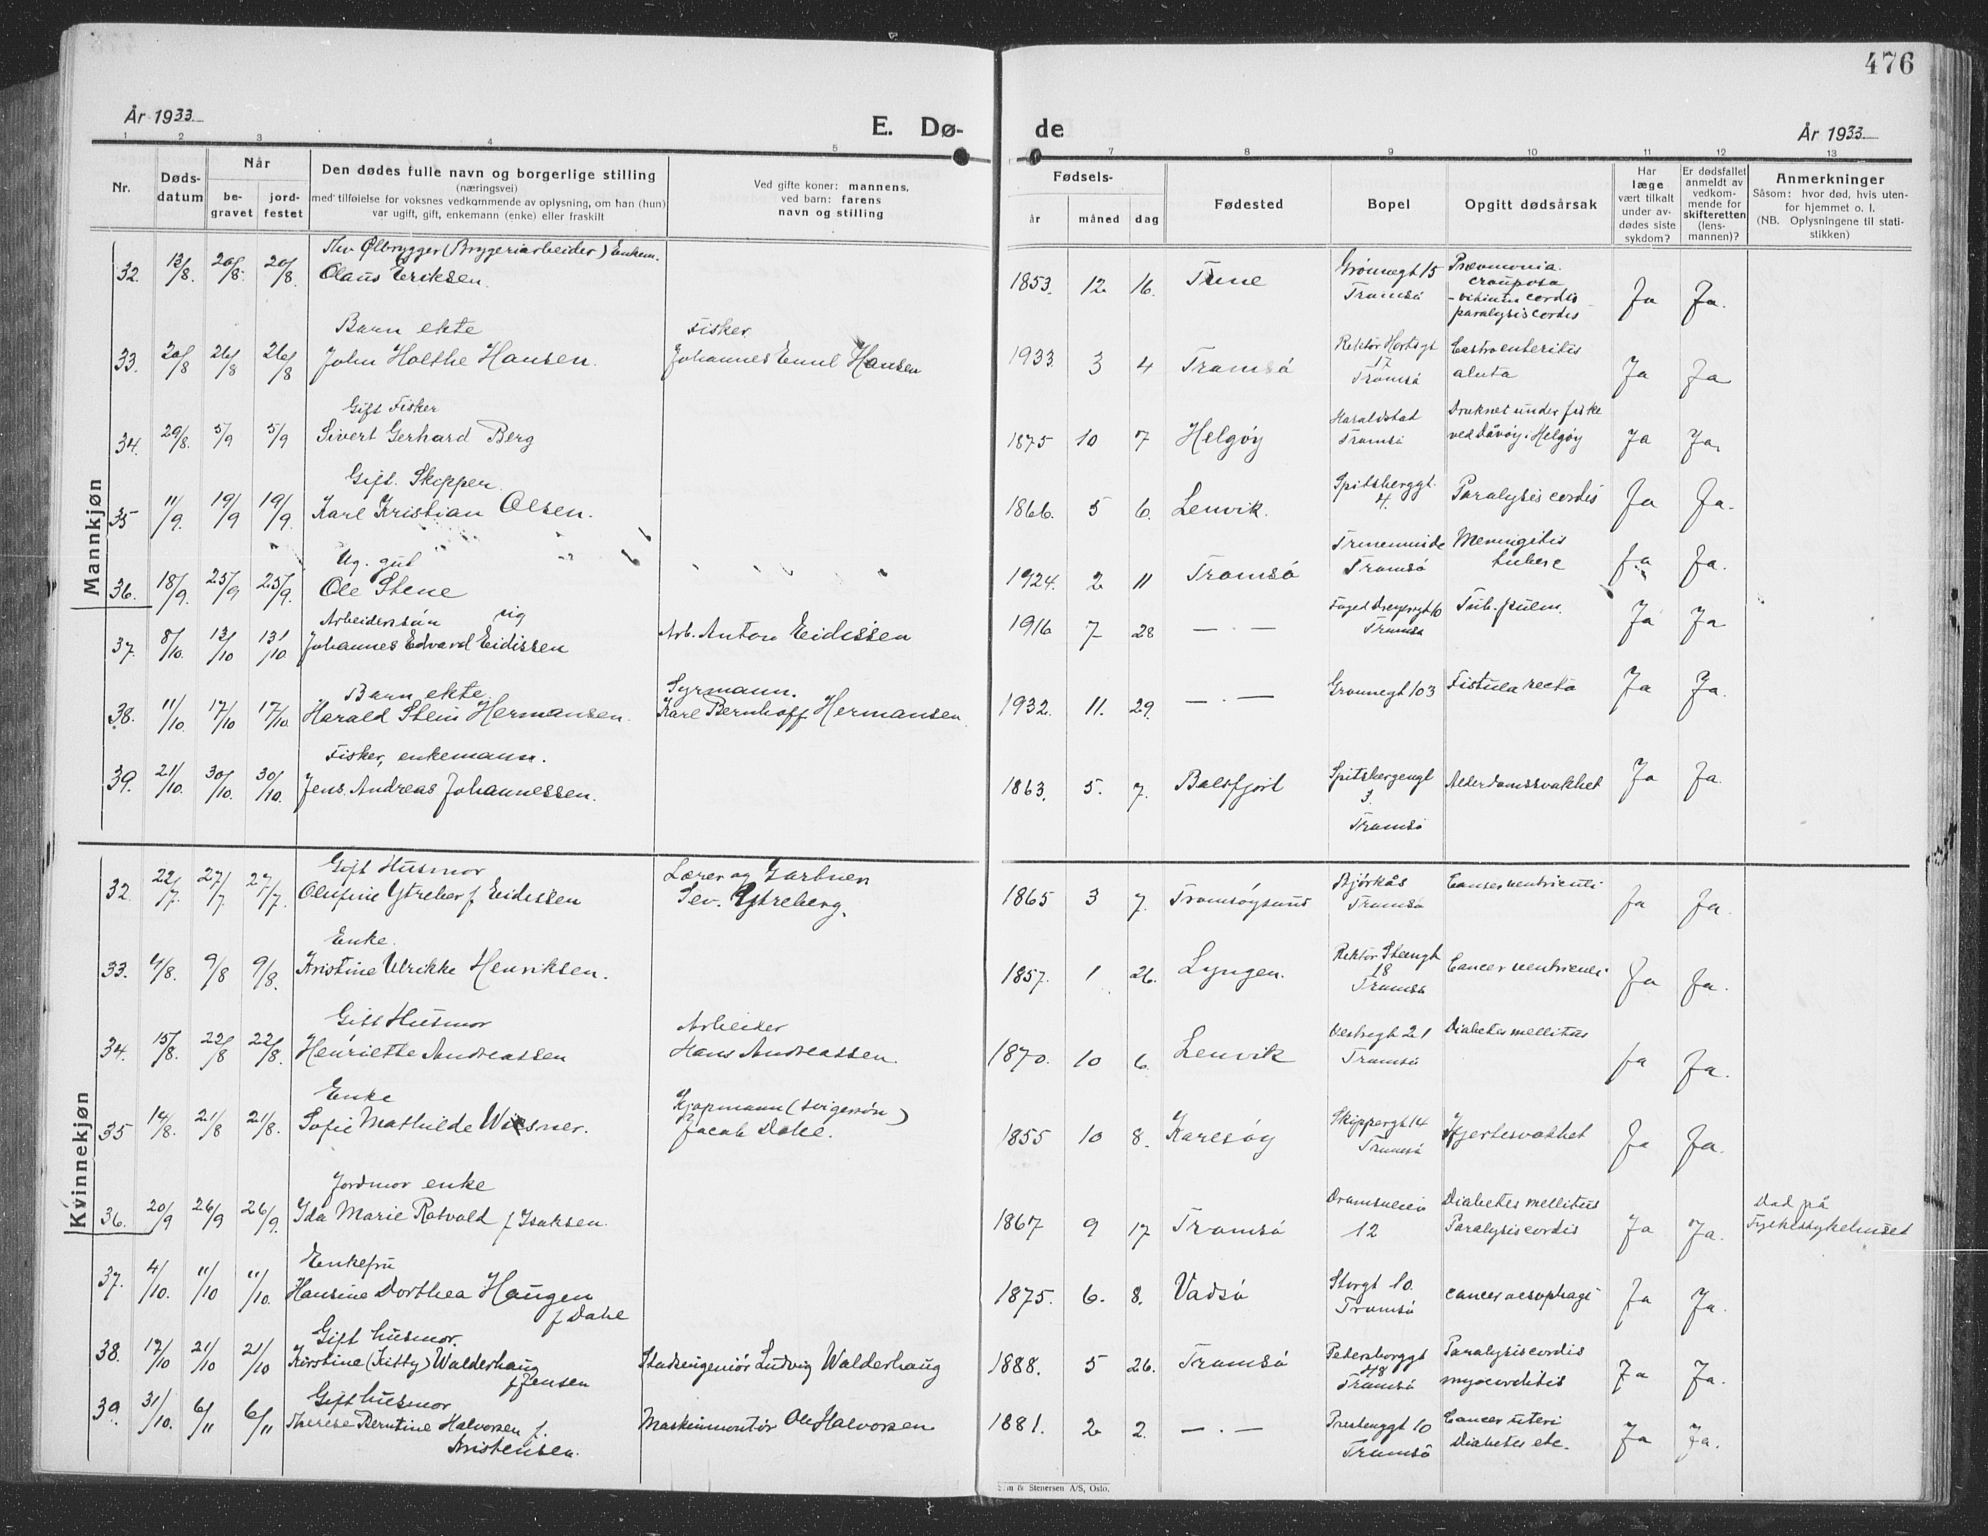 476
År 1933.
E. Dø-
de
År 1933.
1 2 3 4 5 7 8 9 10 11 12 13
Nr.
Døds-
datum
Når
be-
gravet
jord-
festet
Den dødes fulle navn og borgerlige stilling
(næringsvei)
med tilføielse for voksnes vedkommende av oplysning, om han (hun)
var ugift, gift, enkemann (enke) eller fraskilt
Ved gifte koner: mannens,
ved barn: farens
navn og stilling
Fødsels-
år
måned
dag
Fødested
Bopel
Opgitt dødsårsak
Har
læge
vært tilkalt
under av-
dødes siste
sykdom?
Er dødsfallet
anmeldt av
vedkom-
mende for
skifteretten
(lens-
mannen)?
Anmerkninger
Såsom: hvor død, hvis uten-
for hjemmet o. l.
(NB. Oplysningene til stati-
stikken)
Mannkjøn
Ølbrygger (Bryggeriarbeider) Enkem.
32. 13/8. 20/8. 20/8. Olaus Eriksen. 1853. 12 16. Grönnegt 15 Tromsö
crouposa
vitium cordis
paralysis cordis Ja Ja.
Barn ekte Fisker
33. 20/8 26/8 26/8 John Holthe Hansen. Johannes Emil Hansen 1933. 3 4 Tromsö 17 Tromsö Gastroenteritis
akuta Ja Ja
Gift Fisker
34. 29/8. 5/9 5/9 Sivert Gerhard Berg 1875 10 7 Helgöy Haraldstad Tromsö Druknet under fiske
ved Dåvöy i Helgöy Ja Ja.
Gift. Skipper.
35 11/9. 19/9 19/9. Karl Kristian Olsen. 1866. 5 6. Lenvik. Spitsberggt. 4. Paralysis cordis Ja Ja.
Ug. gut
36. 18/9. 25/9 25/9. Ole Stene 1924. 2 11 Tromsö Tromsö Meningitis
tuberc Ja Ja.
Arbeiderssön ug
37. 8/10. 13/10 13/10 Johannes Edvard Eidissen Arb. Anton Eidissen 1916 7 28 — . — Tromsö Tub. pulm. Ja Ja
Barn ekte. Syrmann.
38. 11/10. 17/10 17/10. Harald Stein Hermansen. Karl Bernhoff Hermansen. 1932. 11. 29. — . — Grönnegt 103 Fistula recto Ja Ja.
Fisker, enkemann.
39. 21/10. 30/10. 30/10. Jens Andreas Johannessen. 1863. 5. 7. Balsfjort Spitsbergengt 3. Tromsö Alderdomssvakhet Ja Ja.
Kvinnekjøn
Gift Husmor Lærer og Gartner
32. 22/7. 27/7 27/7. Olufine Ytreber f Eidissen Sev. Ytreberg. 1865 3 7. Tromsöysund Bjórkås Tromsö Cancer ventriculi Ja Ja.
Enke.
33. 4/8. 9/8 9/8. Kristine Ulrikke Henriksen. 1857. 1 26. Lyngen. Rektor Steengt 18 Tromsö Cancer ventriculi Ja Ja.
Gift Husmor Arbeider
34. 15/8. 22/8 22/8. Henriette Andreassen Hans Andreassen. 1870. 10 6. Lenvik Vestregt 21 Tromsö Diabetes mellitus Ja Ja.
Enke Kjøpmann (svigersön)
35 14/8. 21/8 21/8. Sofie Mathilde Wiesner. Jacob Dahl. 1855 10 8. Karlsöy Skippergt 14 Tromsö Hjertesvakhet Ja Ja.
Jordmor enke
36. 20/9 26/9 26/9. Ida Marie Rotvold f Isaksen. 1867 9 17 Tromsö Dramsveien 12 Diabetes mellitus
Paralysis cordis Ja Ja. Död på
Fylkessykehuset
Enkefru
37. 4/10. 11/10 11/10. Hansine Dorthea Haugen
f Dahl 1875. 6. 8. Vadsö Storgt 10. Tromsö cancer oesophagi Ja Ja.
Gift husmor.
38. 17/10 21/10 21/10 Kirstine (Kitty) Walderhaug
f Jensen Stadsingeniör Ludvig Walderhaug 1888. 5 26. Tromsö Petersborggt 48 Tromsö Paralysis cordis
myocarditis Ja Ja.
Gift husmor
39. 31/10. 6/11 6/11 Therese Berntine Halvorsen f.
Kristensen. Maskinmontör Ole Halvorsen 1881. 2 2. — . — Prestenggt 10 Tromsö Cancer uteri
Diabetes etc. Ja Ja.
& Stenersen A/S, Oslo.